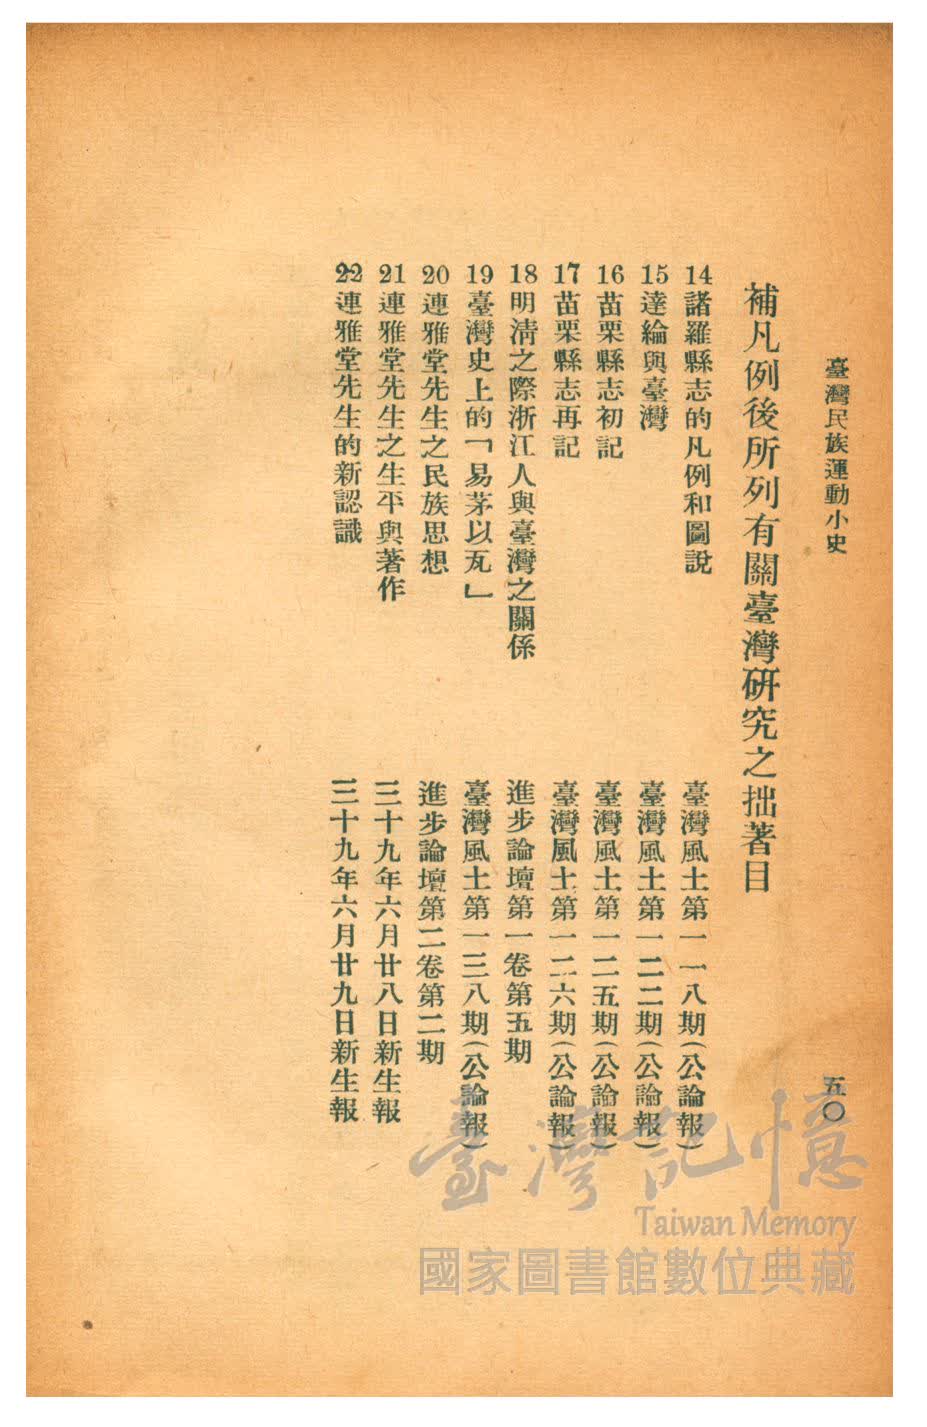 臺灣民族運動小史
五〇
補凡例後所列有關臺灣研究之拙著目
14諸羅縣志的凡例和圖說 臺灣風土第一一八期(公論報)
15達綸與臺灣 臺灣風土第一二二期(公論報)
16苗栗縣志初記 臺灣風土第一二五期(公論報)
17苗栗縣志再記 臺灣風土第一二六期(公論報)
18明淸之際浙江人與臺灣之關係 進步論壇第一卷第五期
19臺灣史上的「易茅以瓦」 臺灣風土第一三八期(公論報)
20連雅堂先生之民族思想 進步論壇第二卷第二期
21連雅堂先生之生平與著作 三十九年六月廿八日新生報
22連雅堂先生的新認識 三十九年六月廿九日新生報
臺灣記憶
Taiwan Memory
國家圖書館數位典藏